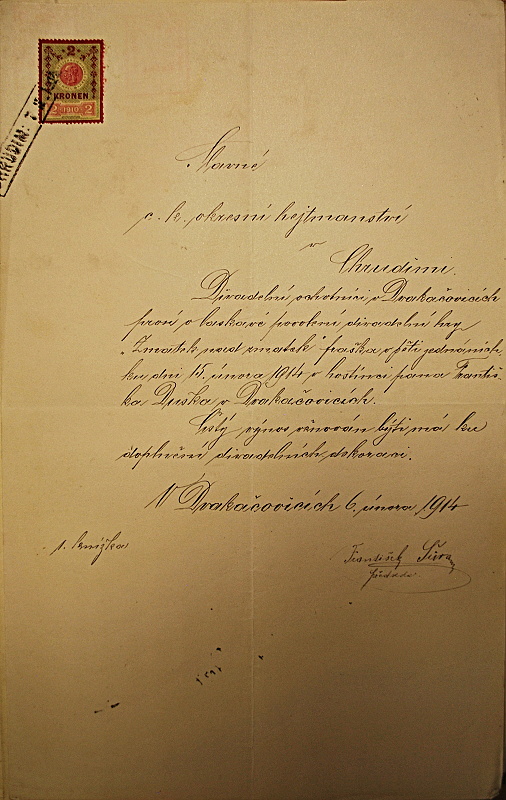 2
KRONEN
2 1910 2
CHRUDIM
Slavné
c. k. okresní hejtmanství
v
Chrudimi.
Divadelní ochotníci v Drakačovicích
prosí o laskavé povolení divadelní hry
„Zmatek nad zmatek" fraška v pěti jednáních
ku dni 15. února 1914 v hostinci pana Františ-
ka Duška v Drakačovicích.
Čistý výnos věnován býti má ku
doplnění divadelních dekorací.
V Drakačovicích 6. února 1914
1. knížka
František